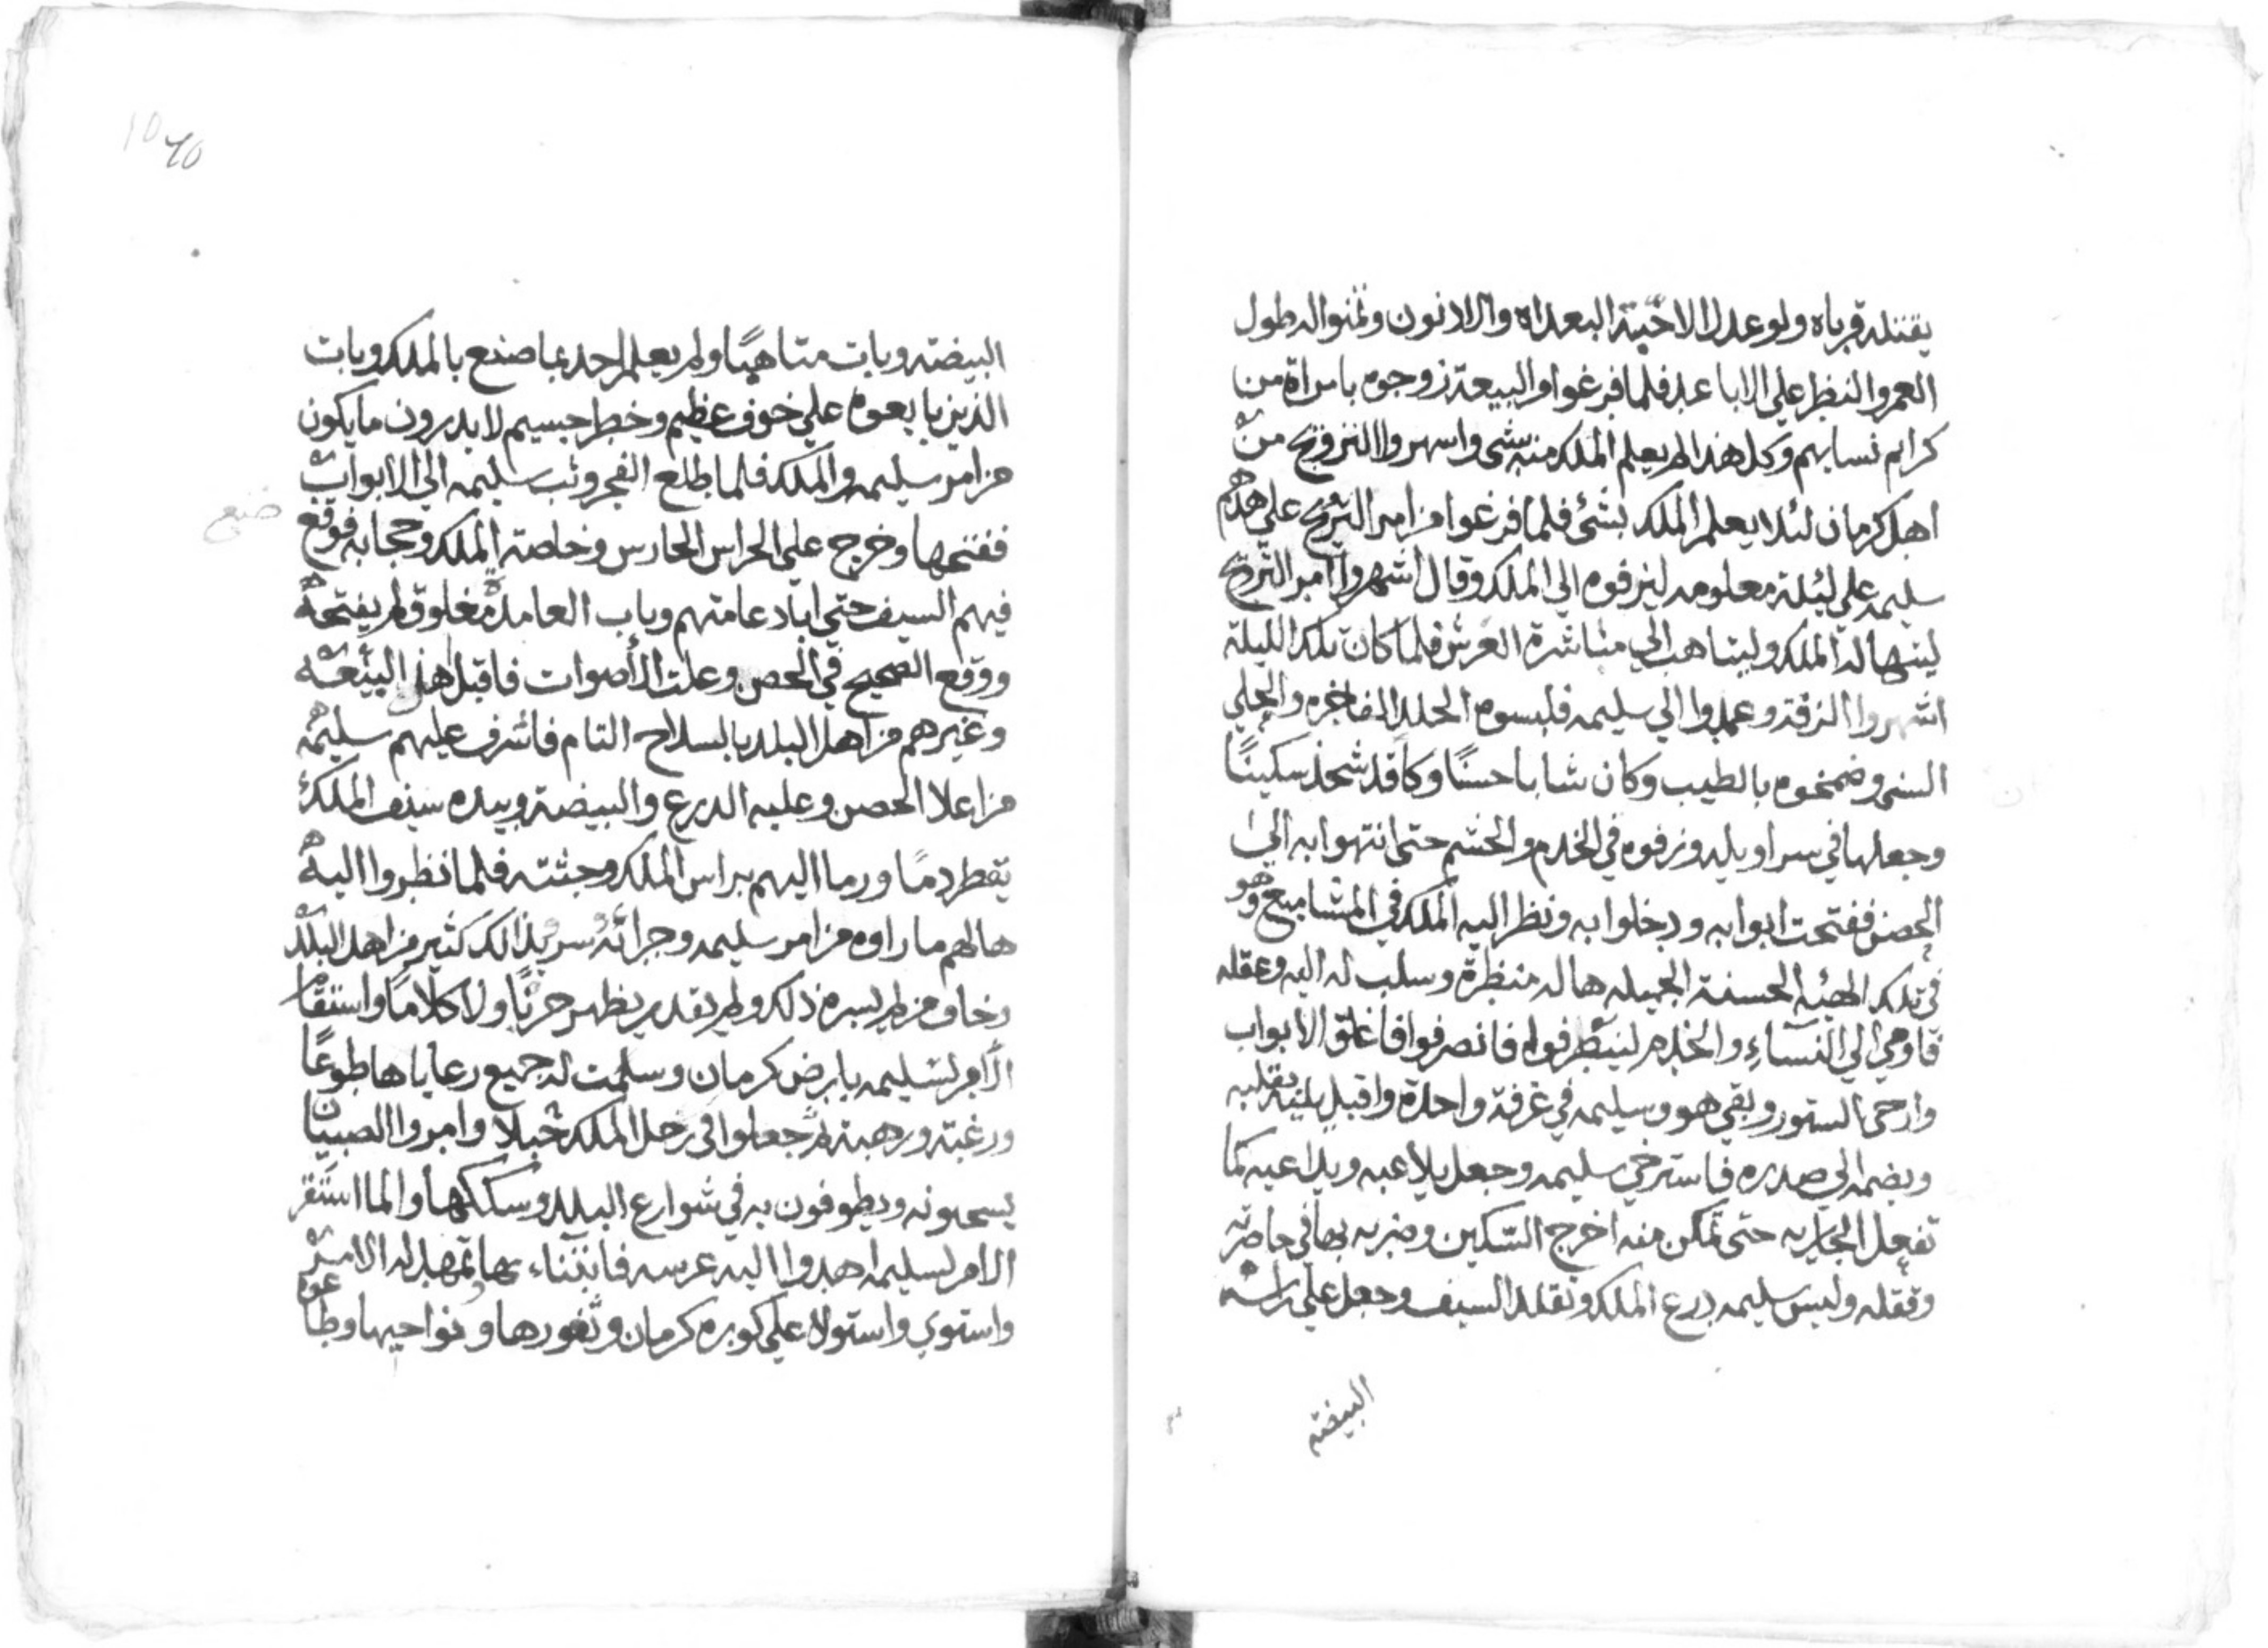 يقتله قرباه ولو عدل الاخيته البعداه والادنون وتمنوا له طول
العمر والنظر علي الاباعد فلما فرغوا من البيعة زوجوه بامراة من
كرايم نسايهم وكل هذا لم يعلم الملك منه بشي واسهروا التزويج من
اهل كرمان لئلا يعلم الملك بشئ فلما فرغوا من امر التزويج علي هدم
سليمه علي ليلة معلومه ليزفوه الي الملك وقال اشهروا امر التزويج
لينهاله الملك وليتاهب الي مباشرة العرش فلما كان تلك الليلة
اشهروا الزفة وعمدوا الي سليمه فلبسوه الحلل الفاخره والحلي
السني وضمخوه بالطيب وكان شابا حسنًا وكا قد شحذ سكينًا
وجعلها في سراويله وزفوه في الخدم والحشم حتي انتهوا به الي
الحصن ففتحت ابوابه ودخلوا به ونظر اليه الملك في المشاميع وهو
في تلك الهيئه الحسنة الجميله هاله منظرة وسلب له اليه وعقله
فاومي الي النساء والخدم لينظرفوا فانصرفوا فاغلق الابواب
وارخي الستور وبقي هو وسليمه في غرفة واحدة واقبل يقلبه
ويضمه الي صدره فاسترخي سليمه وجعل يلاعبه ويداعبه كما
تفعل الجاريه حتي تمكن منه اخرج السكين وضربه بها في خاصرته
وقتله ولبس سليمه درع الملك وتقلد السيف وجعل علي راسه
البيضته
البيضته وبات متاهبًا ولم يعلم احد بما صنع بالملك وبات
الذين بايعوه علي خوف عظيم وخطر جسيم لا يدرون ما يكون
من امر سليمه والملك فلما طلع الفجر وثب سليمه الي الابواب
ففتحها وخرج علي الحراس الحارس وخاصته الملك وحجابه فوقع
ضيع
فيهم السيف حتي اباد عامتهم وباب العامه مغلوق لم يفتحه
ووقع الصحيح في الحصن وعلت الأصوات فاقبل اهل البيعة
وغيرهم من اهل البلد بالسلاح التام فاشرف عليهم سليمه
من اعلا الحصن وعليه الدرع والبيضة وبيده سيف الملك
يقطر دمًا ورما اليهم براس الملك وجثته فلما نظروا اليه
هالهم ما راوه من امر سليمه وجرائه سر بذالك كثير من اهل البلد
وخاف من لم يسره ذلك ولم يقدر يظهر حزنًا ولا كلامًا واستقام
الأمر لسليمه بارض كرمان وسلمت له جميع رعاياها طوعًا
ورغبة ورهبة ثم جعلوا في رجل الملك حبلا وامروا الصبيان
يسحبونه ويطوفون به في شوارع البلد وسككها ولما استقر
الامر لسليمه اهدوا اليه عرسه فابتناء بها تمهد له الامر
واستوي واستولا علي كوره كرمان وثغورها ونواحيها وطاعوا